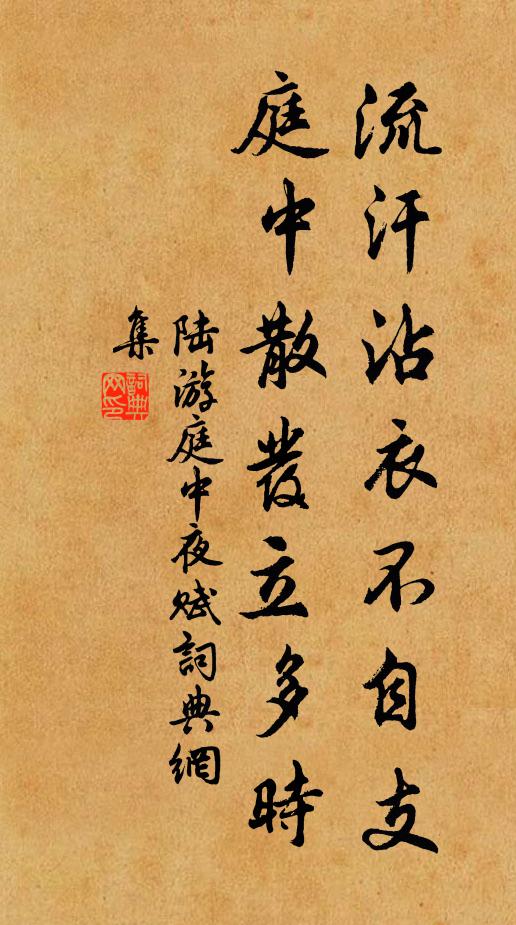 流汗沾衣不自支
庭中散發立多時
陆游庭中夜赋詞典網
集
詞典
网印